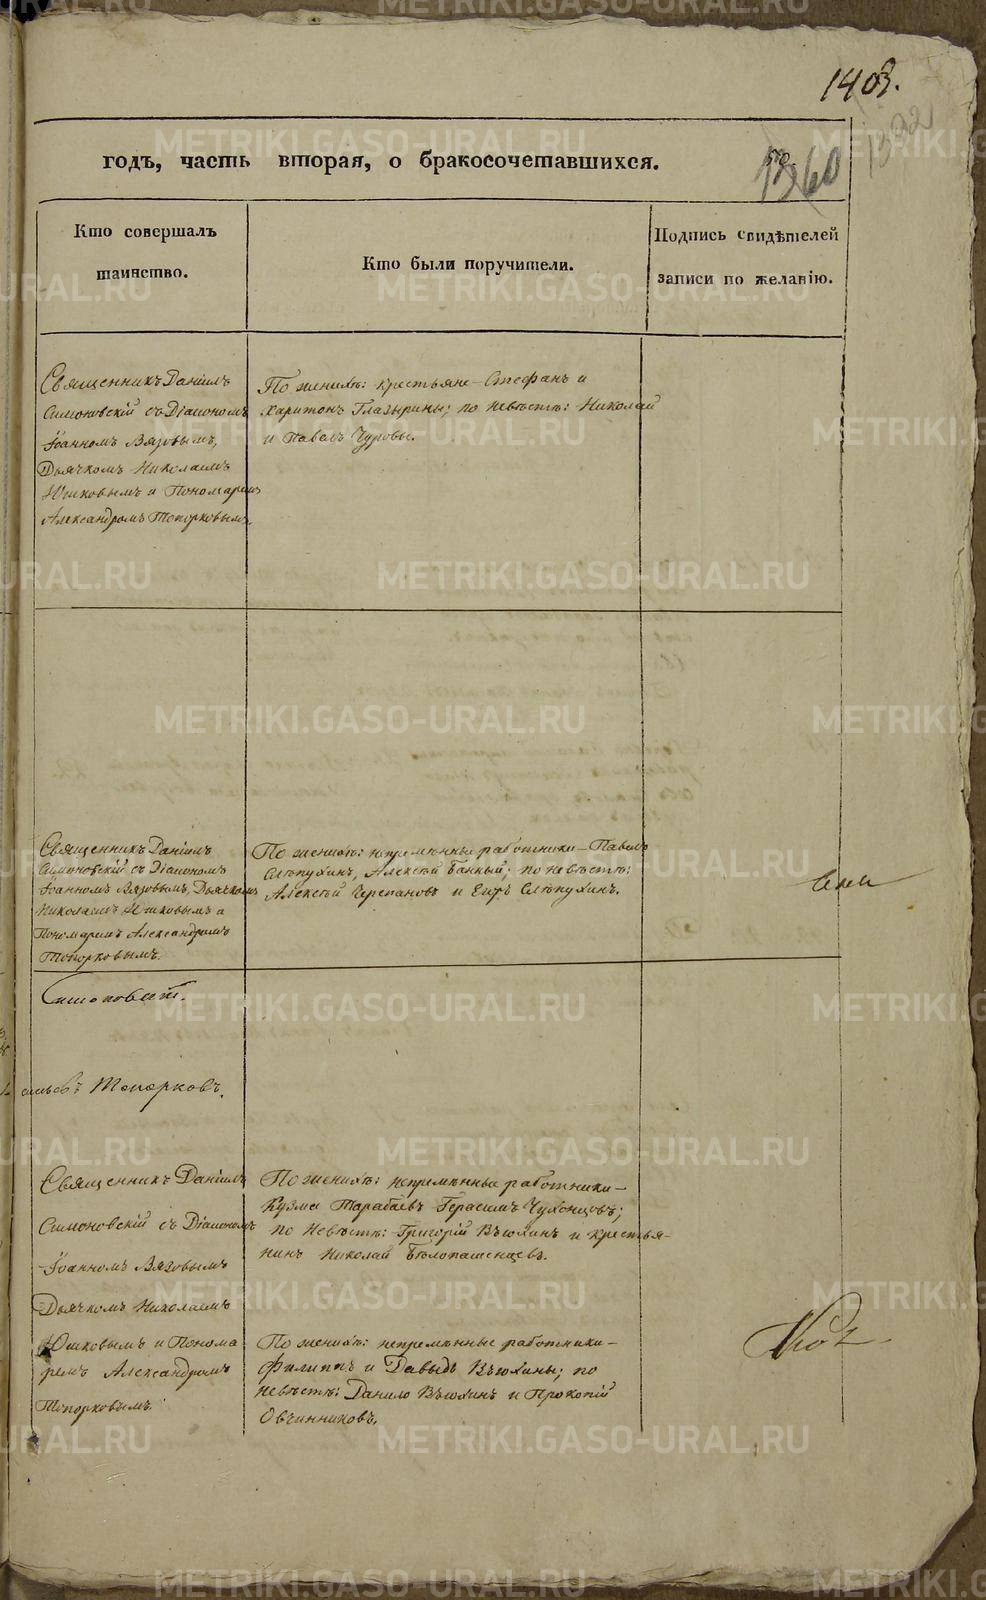 1403.
1392
1360
годъ, часть вторая, о бракосочетавшихся.
Кто совершалъ
таинство.
Кто были поручители.
Подпись свидѣтелей
записи по желанію.
Священникъ Даніилъ
Симоновскій съ Діакономъ
Іоанномъ Вязовымъ,
Дьячкомъ Николаемъ
Юшковымъ и Пономаремъ
Александромъ Топорковымъ.
По женихѣ: крестьяне – Стефанъ и
Харитонъ Глазырины; по невѣстѣ: Николай
и Павелъ Чуровы.
Священникъ Даніилъ
Симоновскій съ Діакономъ
Іоанномъ Вязовымъ, Дьячкомъ
Николаемъ Юшковымъ и
Пономаремъ Александромъ
Топорковымъ.
По женихѣ: непремѣнные работники – Павелъ
Слѣпухинъ, Алексѣй Банный; по невѣстѣ:
Алексѣй Черепановъ и Егоръ Слѣпухинъ.
Симоновскій.
Топорковъ.
Священникъ Даніилъ
Симоновскій съ Діакономъ
Іоанномъ Вязовымъ
Дьячкомъ Николаемъ
Юшковымъ и Понома
ремъ Александромъ
Топорковымъ.
По женихѣ: непремѣнные работники –
Кузма Тарабаевъ Герасимъ Чухонцовъ;
по невѣстѣ: Григорій Вьюхинъ и крестья-
нинъ Николай Бѣлопашенцевъ.
По женихѣ: непремѣнные работники –
Филиппъ и Давыдъ Вьюхины; по
невѣстѣ: Данило Вьюхинъ и Прокопій
Овчинниковъ.
METRIKI.GASO-URAL.RU